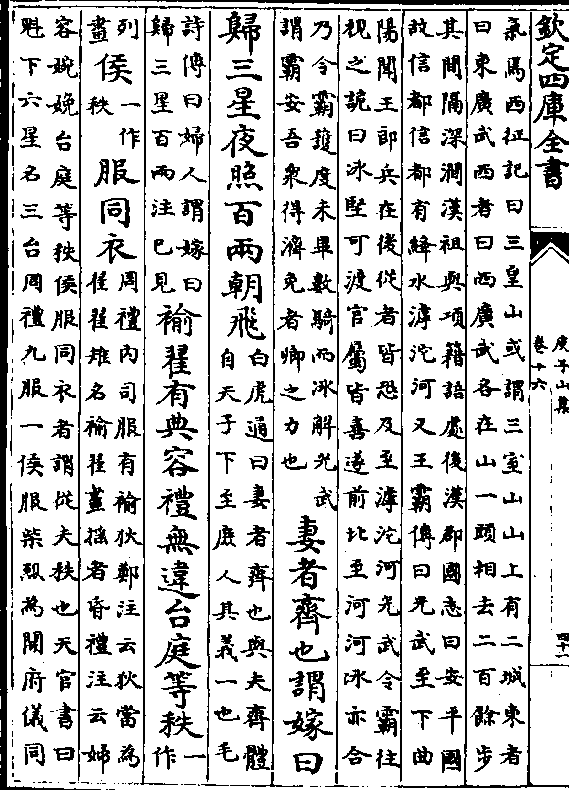 欽定四庫全書
庾子山集
卷十六
四十一
氣馮西征記曰三皇山或謂三室山山上有二城東者
曰東廣武西者曰西廣武各在山一頭相去二百餘步
其間隔深澗漢祖與項籍語處後漢郡國志曰安平國
故信都信都有絳水滹沱河又王霸傳曰光武至下曲
陽聞王郎兵在後從者皆恐及至滹沱河光武令霸往
視之詭曰冰堅可渡官屬皆喜遂前比至河河冰亦合
乃令霸護度未畢數騎而冰解光武
謂霸安吾衆得濟免者卿之力也
妻者齊也謂嫁曰
歸三星夜照百兩朝飛
白虎通曰妻者齊也與夫齊體
自天子下至庶人其義一也毛
詩傳曰婦人謂嫁曰
歸三星百兩注已見
褕翟有典容禮無違台庭等秩
一作
列畫
侯
一作秩
服同衣
周禮内司服有褕狄鄭注云狄當為
翟翟雉名褕翟畫搖者昏禮注云婦
容婉娩台庭等秩侯服同衣者謂從夫秩也天官書曰
魁下六星名三台周禮九服一侯服柴烈為開府儀同